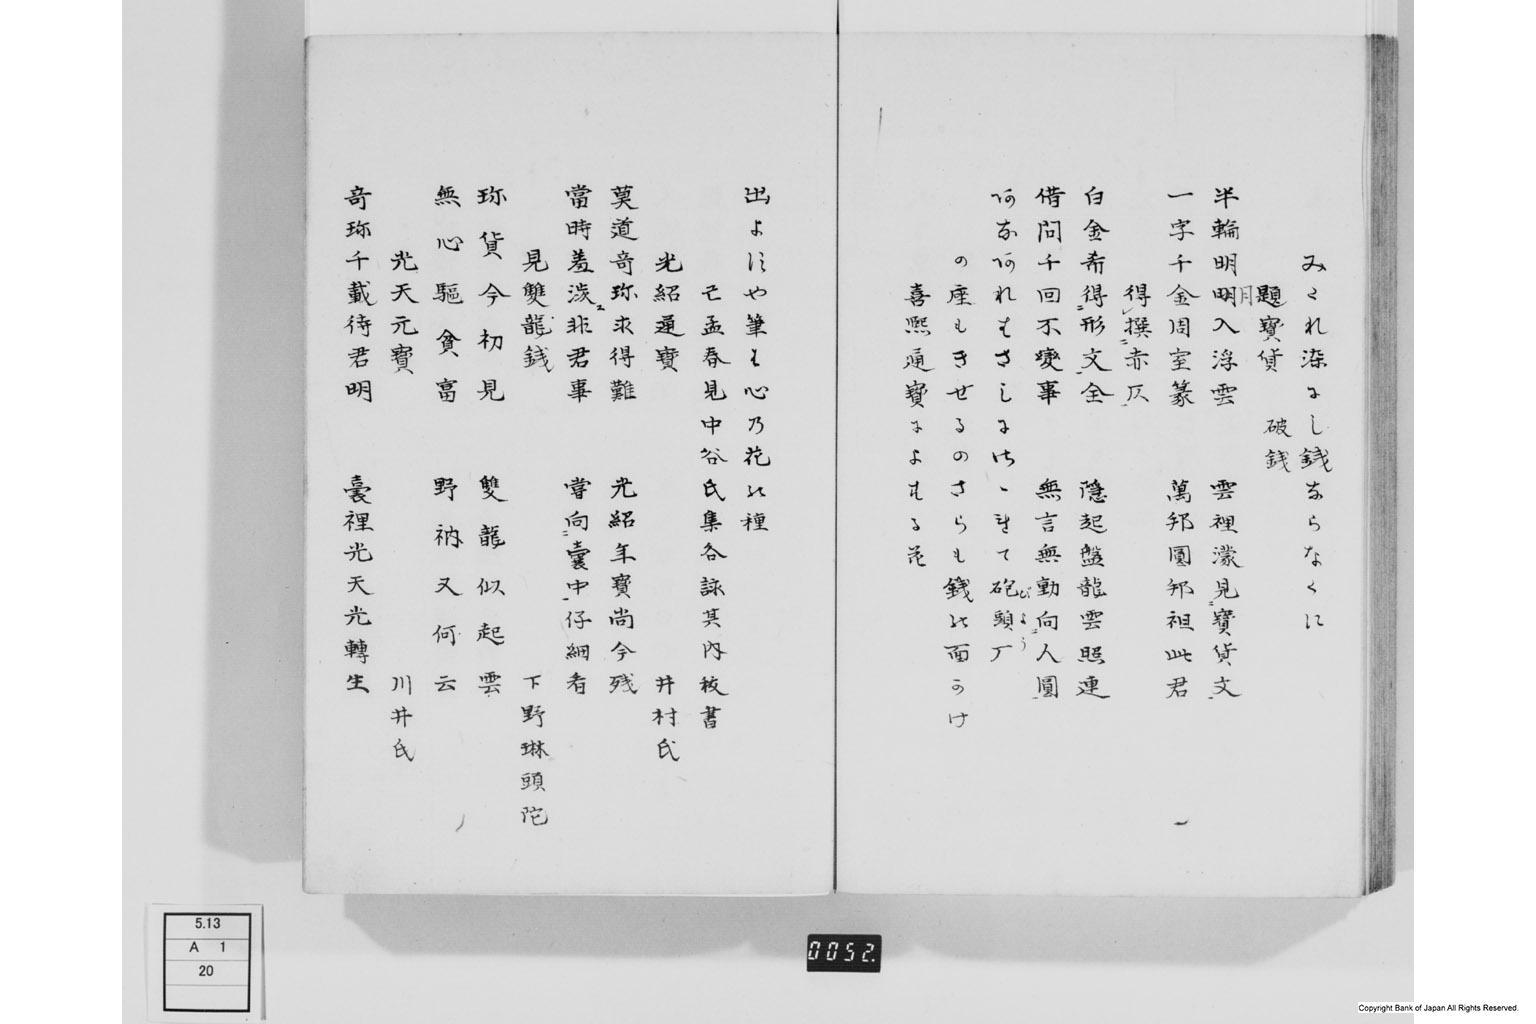 みくれ深にし銭ならなくに
題寳貨　破銭
半輪明明入浮雲　雲裡濛見寳貨文
月
一字千金周室篆　萬邦圜邦祖此君
得撰赤仄
白金希得形文全　隠起盤龍雲照連
借問千回不變事　無言無動向人圓
砲頭厂
びよう
の座もきせるのさらも銭の面かけ
喜熙通寳によする花
出よ　や筆も心乃花の種
己孟春見中谷氏集各詠其内抜書
光紹通寳　井村氏
莫道奇珎求得難　光紹年寳尚今残
當時羞澁非君事　嘗向囊中仔細看
見雙龍錢　下野琳頭陀
珎貨今初見　雙龍似起雲
無心驅貧富　野衲又何云
光天元寳　川井氏
奇珎千載待君明　囊裡光天光轉生
5.13
A 1
20
0052.
Copyright Bank of Japan All Rights Reserved.